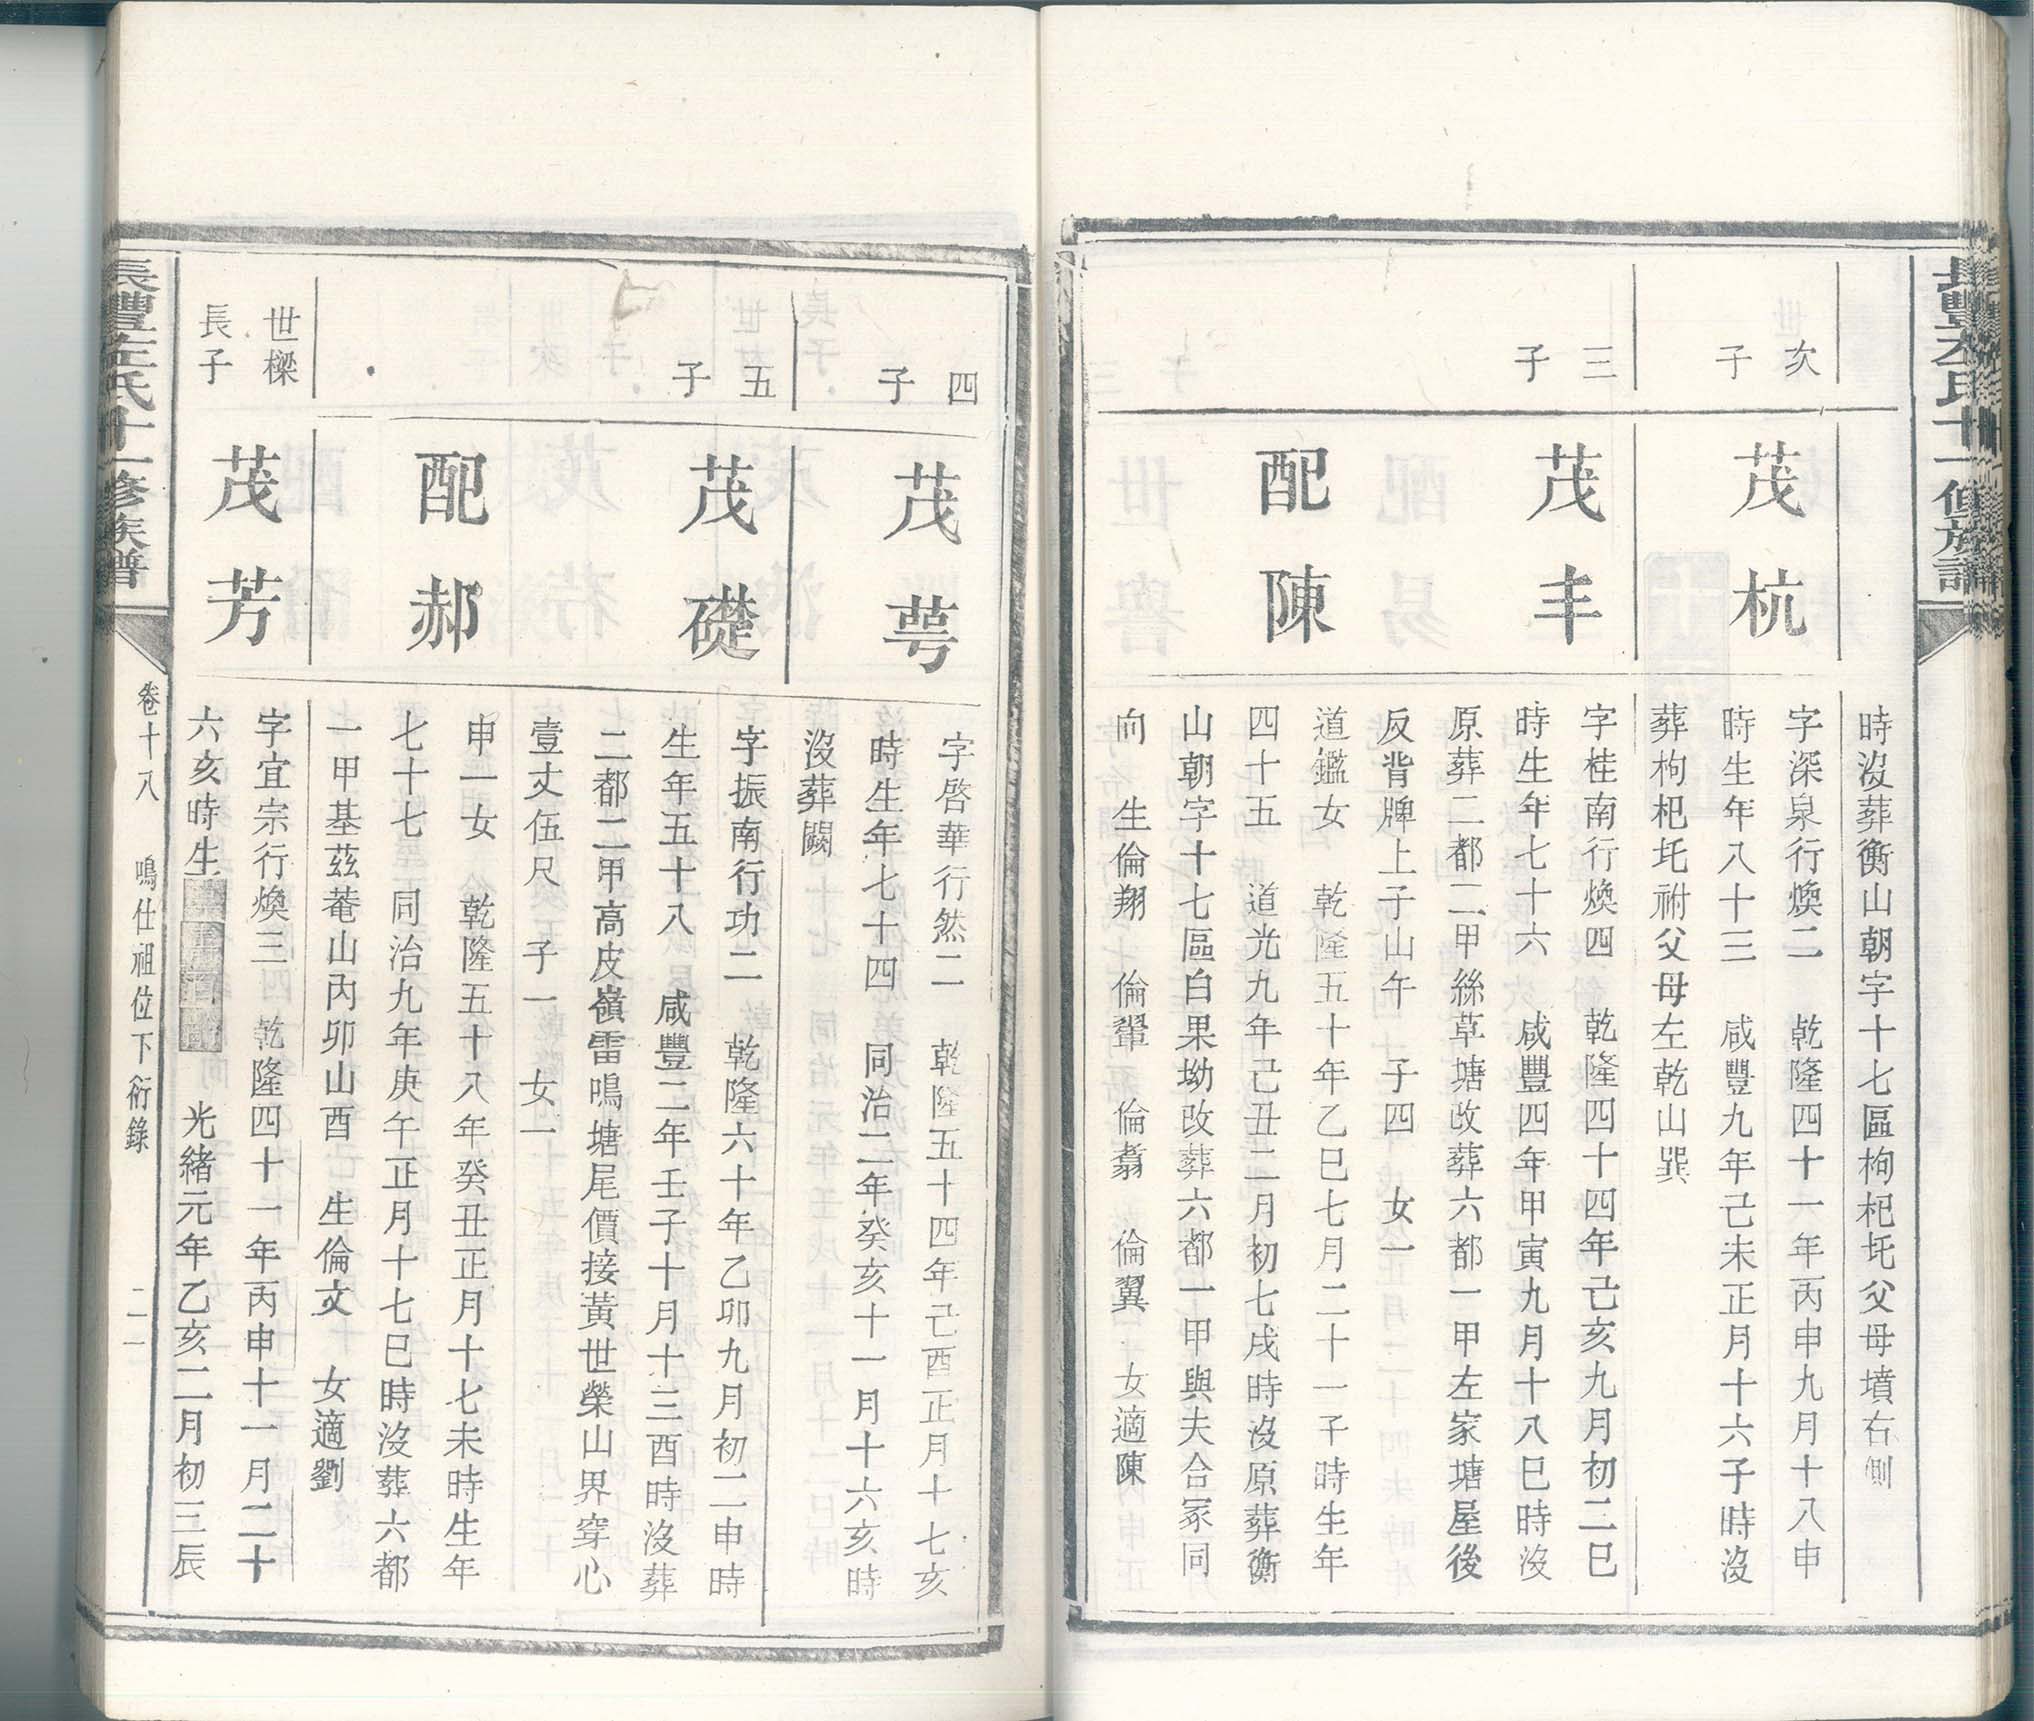 時沒葬衡山朝字十七區枸杞圫父母墳右側
次
子
茂杭
字深泉行煥二　乾隆四十一年丙申九月十八申
時生年八十三　咸豐九年己未正月十六子時沒
葬枸杞圫祔父母左乾山巽
三
子
茂丰
字桂南行煥四　乾隆四十四年己亥九月初二巳
時生年七十六　咸豐四年甲寅九月十八巳時沒
原葬二都二甲絲草塘改葬六都一甲左家塘屋後
反背牌上子山午　子四　女一
配陳
道鑑女　乾隆五十年乙巳七月二十一子時生年
四十五　道光九年己丑二月初七戌時沒原葬衡
山朝字十七區白果坳改葬六都一甲與夫合冢同
向　生倫翔　倫翬　倫翥　倫翼　女適陳
四
子
茂萼
字啓華行然二　乾隆五十四年己酉正月十七亥
時生年七十四　同治二年癸亥十一月十六亥時
沒葬闕
五
子
茂礎
字振南行功二　乾隆六十年乙卯九月初二申時
生年五十八　咸豐二年壬子十月十三酉時沒葬
二都二甲高皮嶺雷鳴塘尾價接黃世榮山界穿心
壹丈伍尺　子一　女一
配郝
申一女　乾隆五十八年癸丑正月十七未時生年
七十七　同治九年庚午正月十七巳時沒葬六都
一甲基茲菴山丙卯山酉　生倫文　女適劉
世樑
長子
茂芳
字宜宗行煥三　乾隆四十一年丙申十一月二十
六亥時生　光緒元年乙亥二月初三辰
長豐左氏十一修族譜
卷十八　鳴仕祖位下衍錄　二一